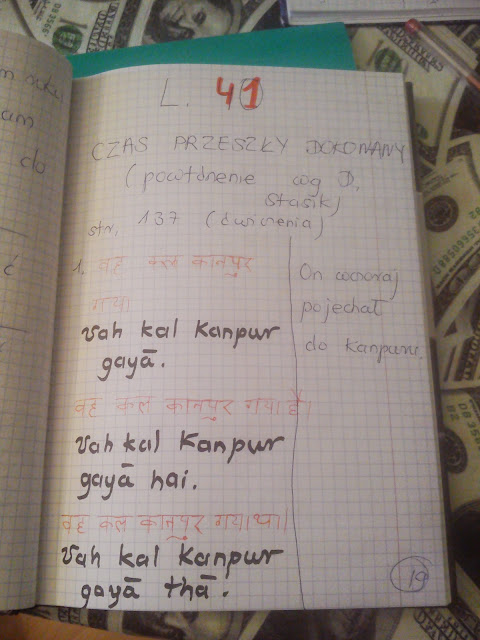 L. 41
CZAS PRZESZŁY DOKONANY
(powtórzenie wg D.
Stasik)
str. 137 (ćwiczenia)
1. वह कल कानपुर
गया
vah kal Kanpur
gayā.
वह कल कानपुर गया है।
vah kal Kanpur
gayā hai.
वह कल कानपुर गया था।
vah kal Kanpur
gayā thā.
On wczoraj
pojechał
do Kanpuru.
19
am
do
ć